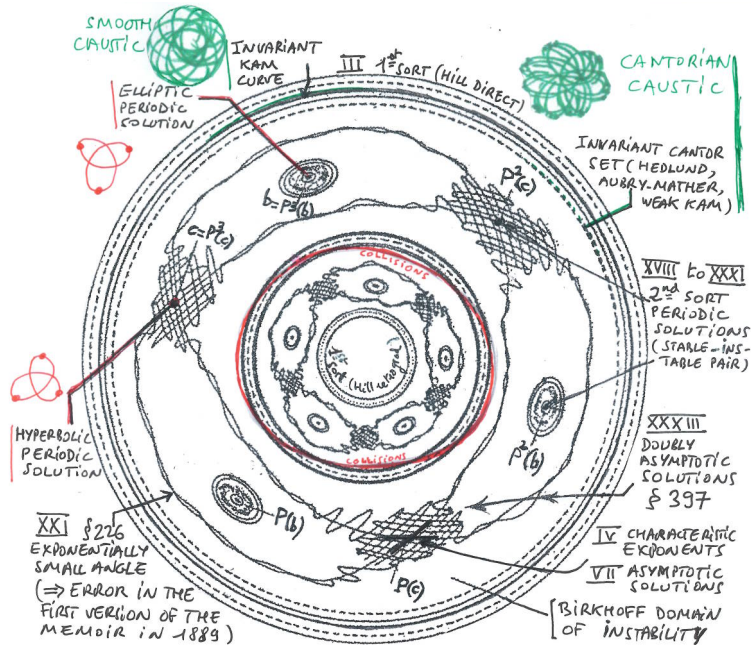 SMOOTH
CAUSTIC
INVARIANT
KAM
CURVE
III 1st SORT (HILL DIRECT)
CANTORIAN
CAUSTIC
ELLIPTIC
PERIODIC
SOLUTION
INVARIANT CANTOR
SET (HEDLUND,
AUBRY-MATHER,
WEAK KAM)
b=P³(b)
P²(c)
c=P³(c)
COLLISIONS
1st
SORT (Hill retrograd)
COLLISIONS
XVIII to XXXI
2nd SORT
PERIODIC
SOLUTIONS
(STABLE-INS-
TABLE PAIR)
P²(b)
HYPERBOLIC
PERIODIC
SOLUTION
XXXIII
DOUBLY
ASYMPTOTIC
SOLUTIONS
§ 397
P(b)
P(c)
XXI §226
EXPONENTIALLY
SMALL ANGLE
(⇒ ERROR IN THE
FIRST VERSION OF THE
MEMOIR IN 1889)
IV CHARACTERISTIC
EXPONENTS
VII ASYMPTOTIC
SOLUTIONS
[BIRKHOFF DOMAIN
OF INSTABILITY